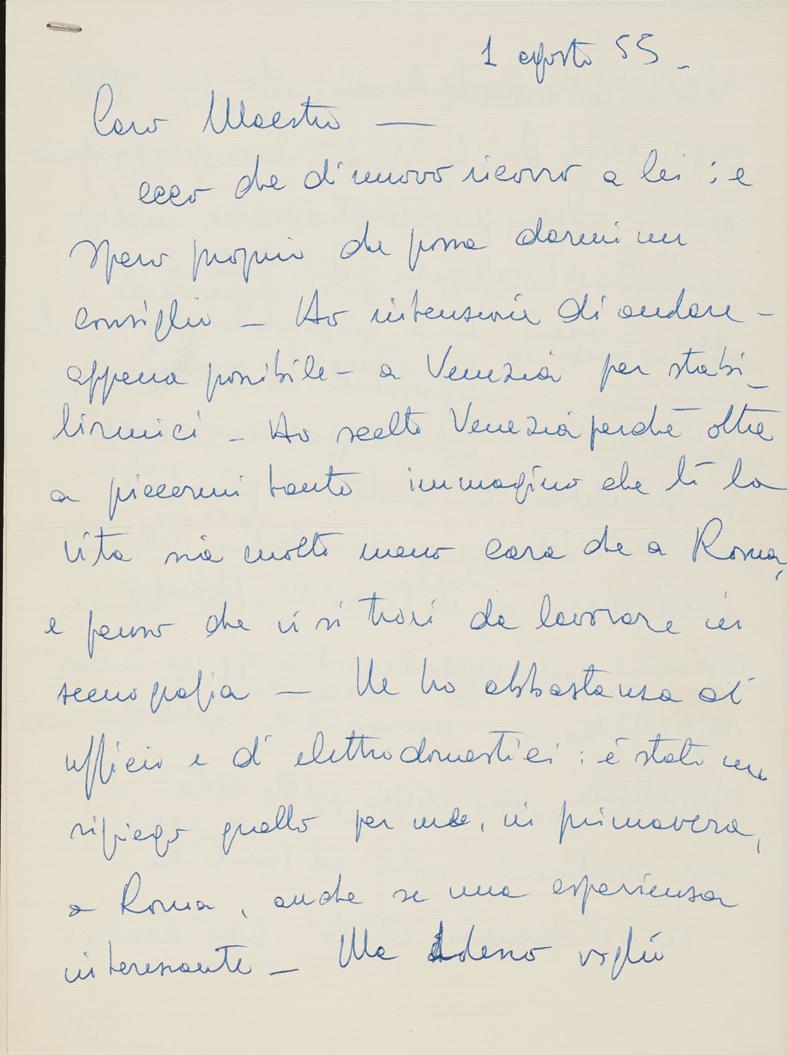 1 agosto 55 -
Caro Maestro —
ecco che di nuovo ricorro a lei : e
spero proprio che possa darmi un
consiglio - Ho intenzione di andare -
appena possibile - a Venezia per stabi-
lirmici - Ho scelto Venezia perché oltre
a piacermi tanto immagino che lì la
vita sia molto meno cara che a Roma,
e penso che vi si trovi da lavorare in
scenografia — Ne ho abbastanza di
ufficio e di elettrodomestici : é stato un
ripiego quello per me, in primavera,
a Roma, anche se una esperienza
interessante - Ma adesso voglio